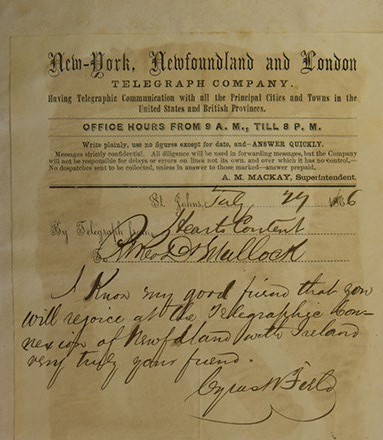 New-York, Newfoundland and London
TELEGRAPH COMPANY.
Having Telegraphic Communication with all the Principal Cities and Towns in the
United States and British Provinces.
OFFICE HOURS FROM 9 A. M., TILL 8 P. M.
Write plainly, use no figures except for date, and—ANSWER QUICKLY.
Messages strictly confidential. All diligence will be used in forwarding messages, but the Company
will not be responsible for delays or errors on lines not its own, and over which it has no control,—
No despatches sent to be collected, unless in answer to those marked—answer prepaid.
A. M. MACKAY, Superintendent.
St. Johns, July 29 186
By Telegraph from Hearts Content
To Dr Mullock
I Know my good friend that you
will rejoice at the Telegraphic Con-
nexion of Newfdland with Ireland
very truly your friend.
Cyrus W Field